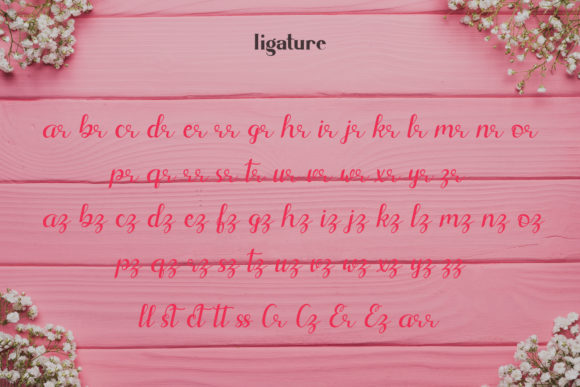 ligature
ar br cr dr er rr gr hr ir jr kr lr mr nr or
pr qr rr sr tr ur vr wr xr yr zr
az bz cz dz ez fz gz hz iz jz kz lz mz nz oz
pz qz rz sz tz uz vz wz xz yz zz
ll st ct tt ss Cr Cz Er Ez arr